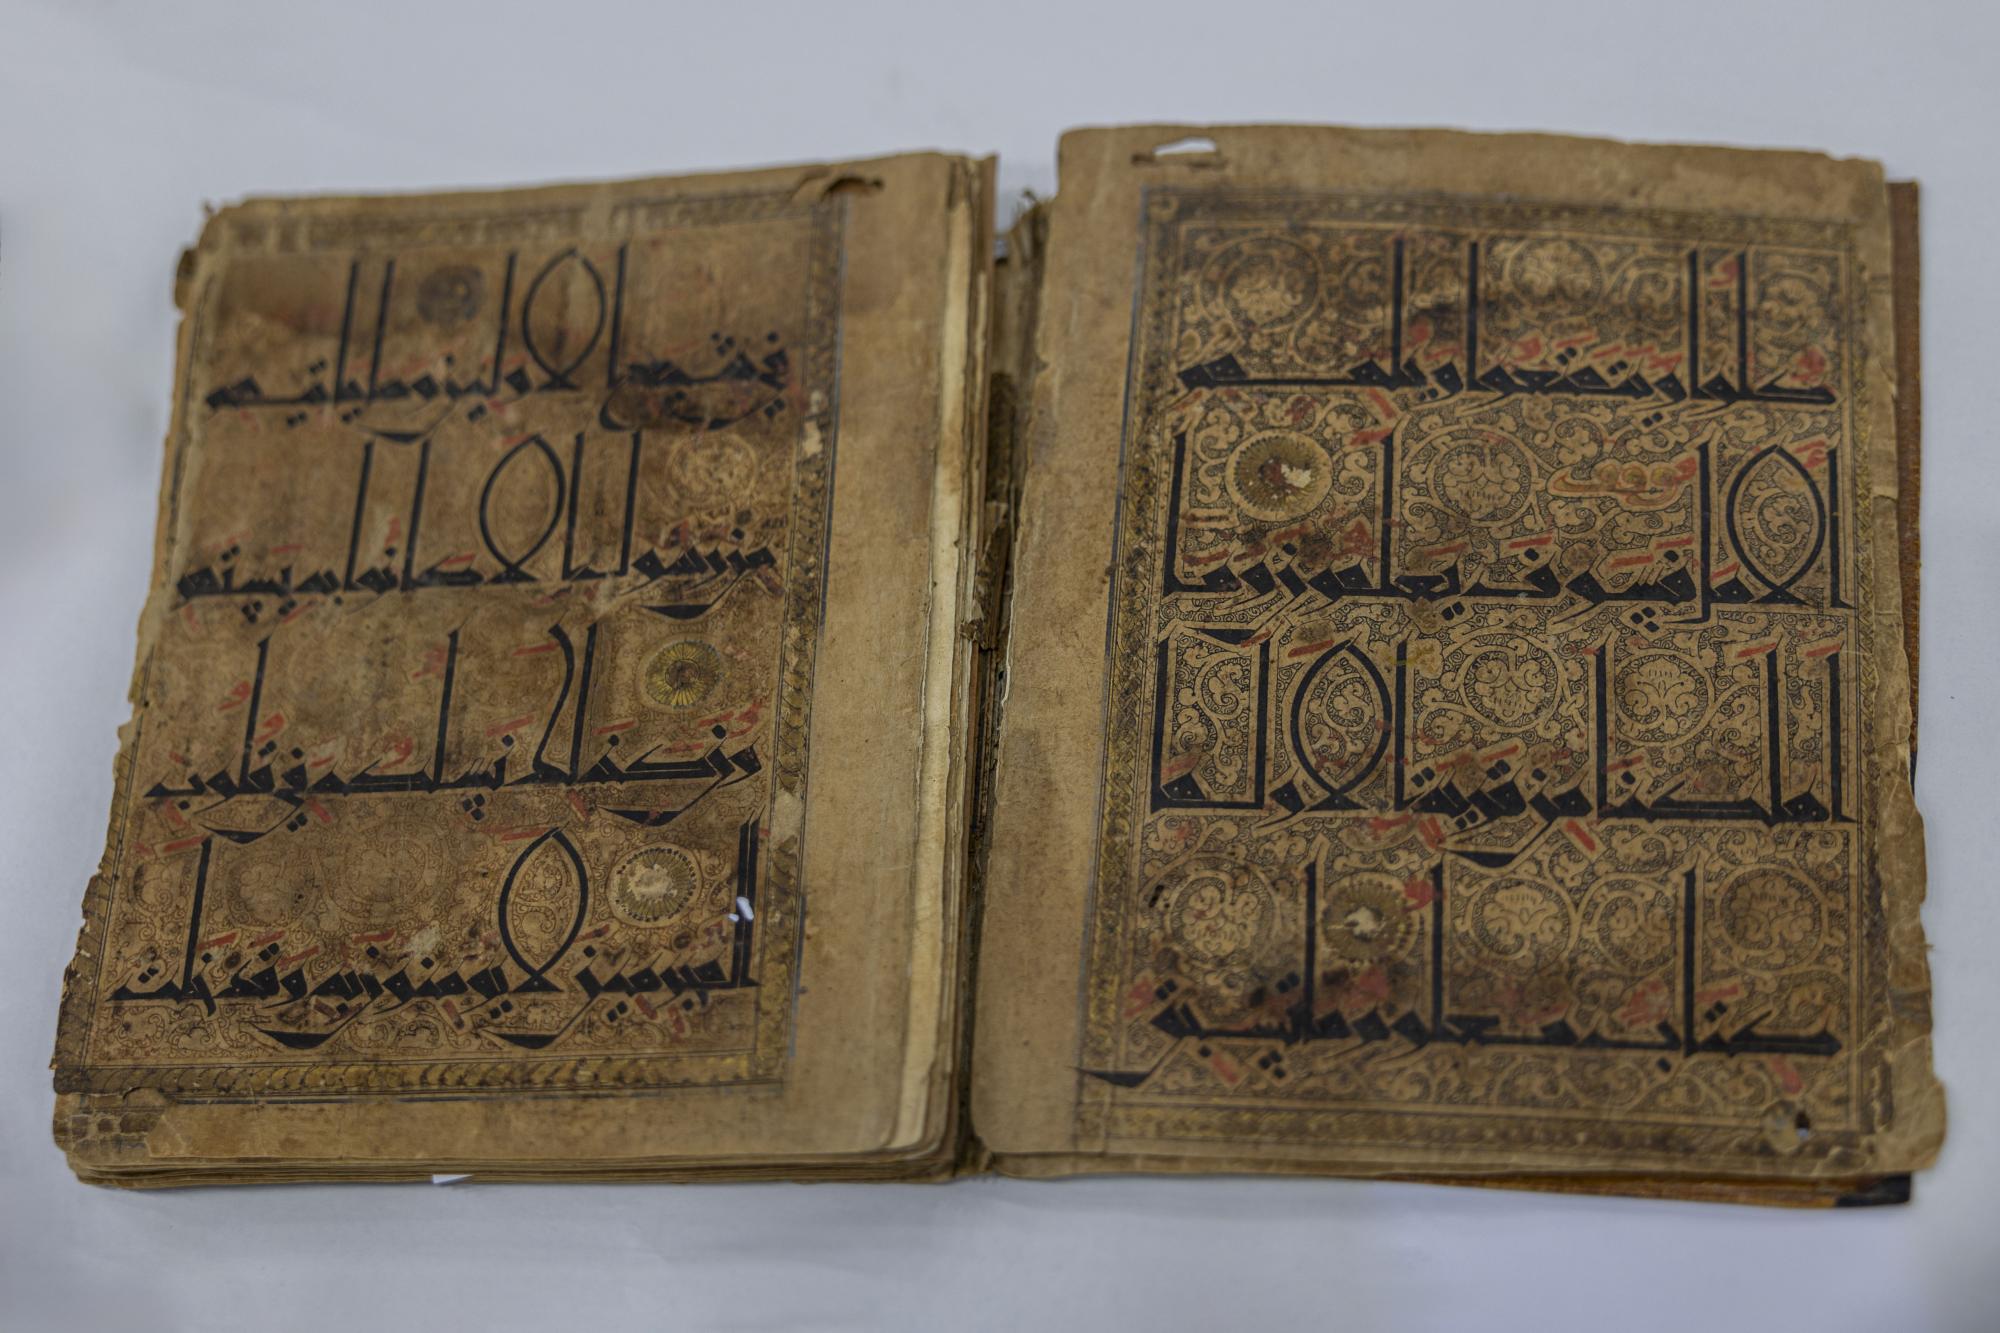 كلوا ويتمتعوا ويلههم
الامل فسوف يعلمون وما
اهلكنا من قرية الا ولها
كتاب معلوم ما تسبق
في شيع الاولين وما ياتيهم
من رسول الا كانوا به يستهز
ون كذلك نسلكه في قلوب
المجرمين لا يومنون به وقد خلت